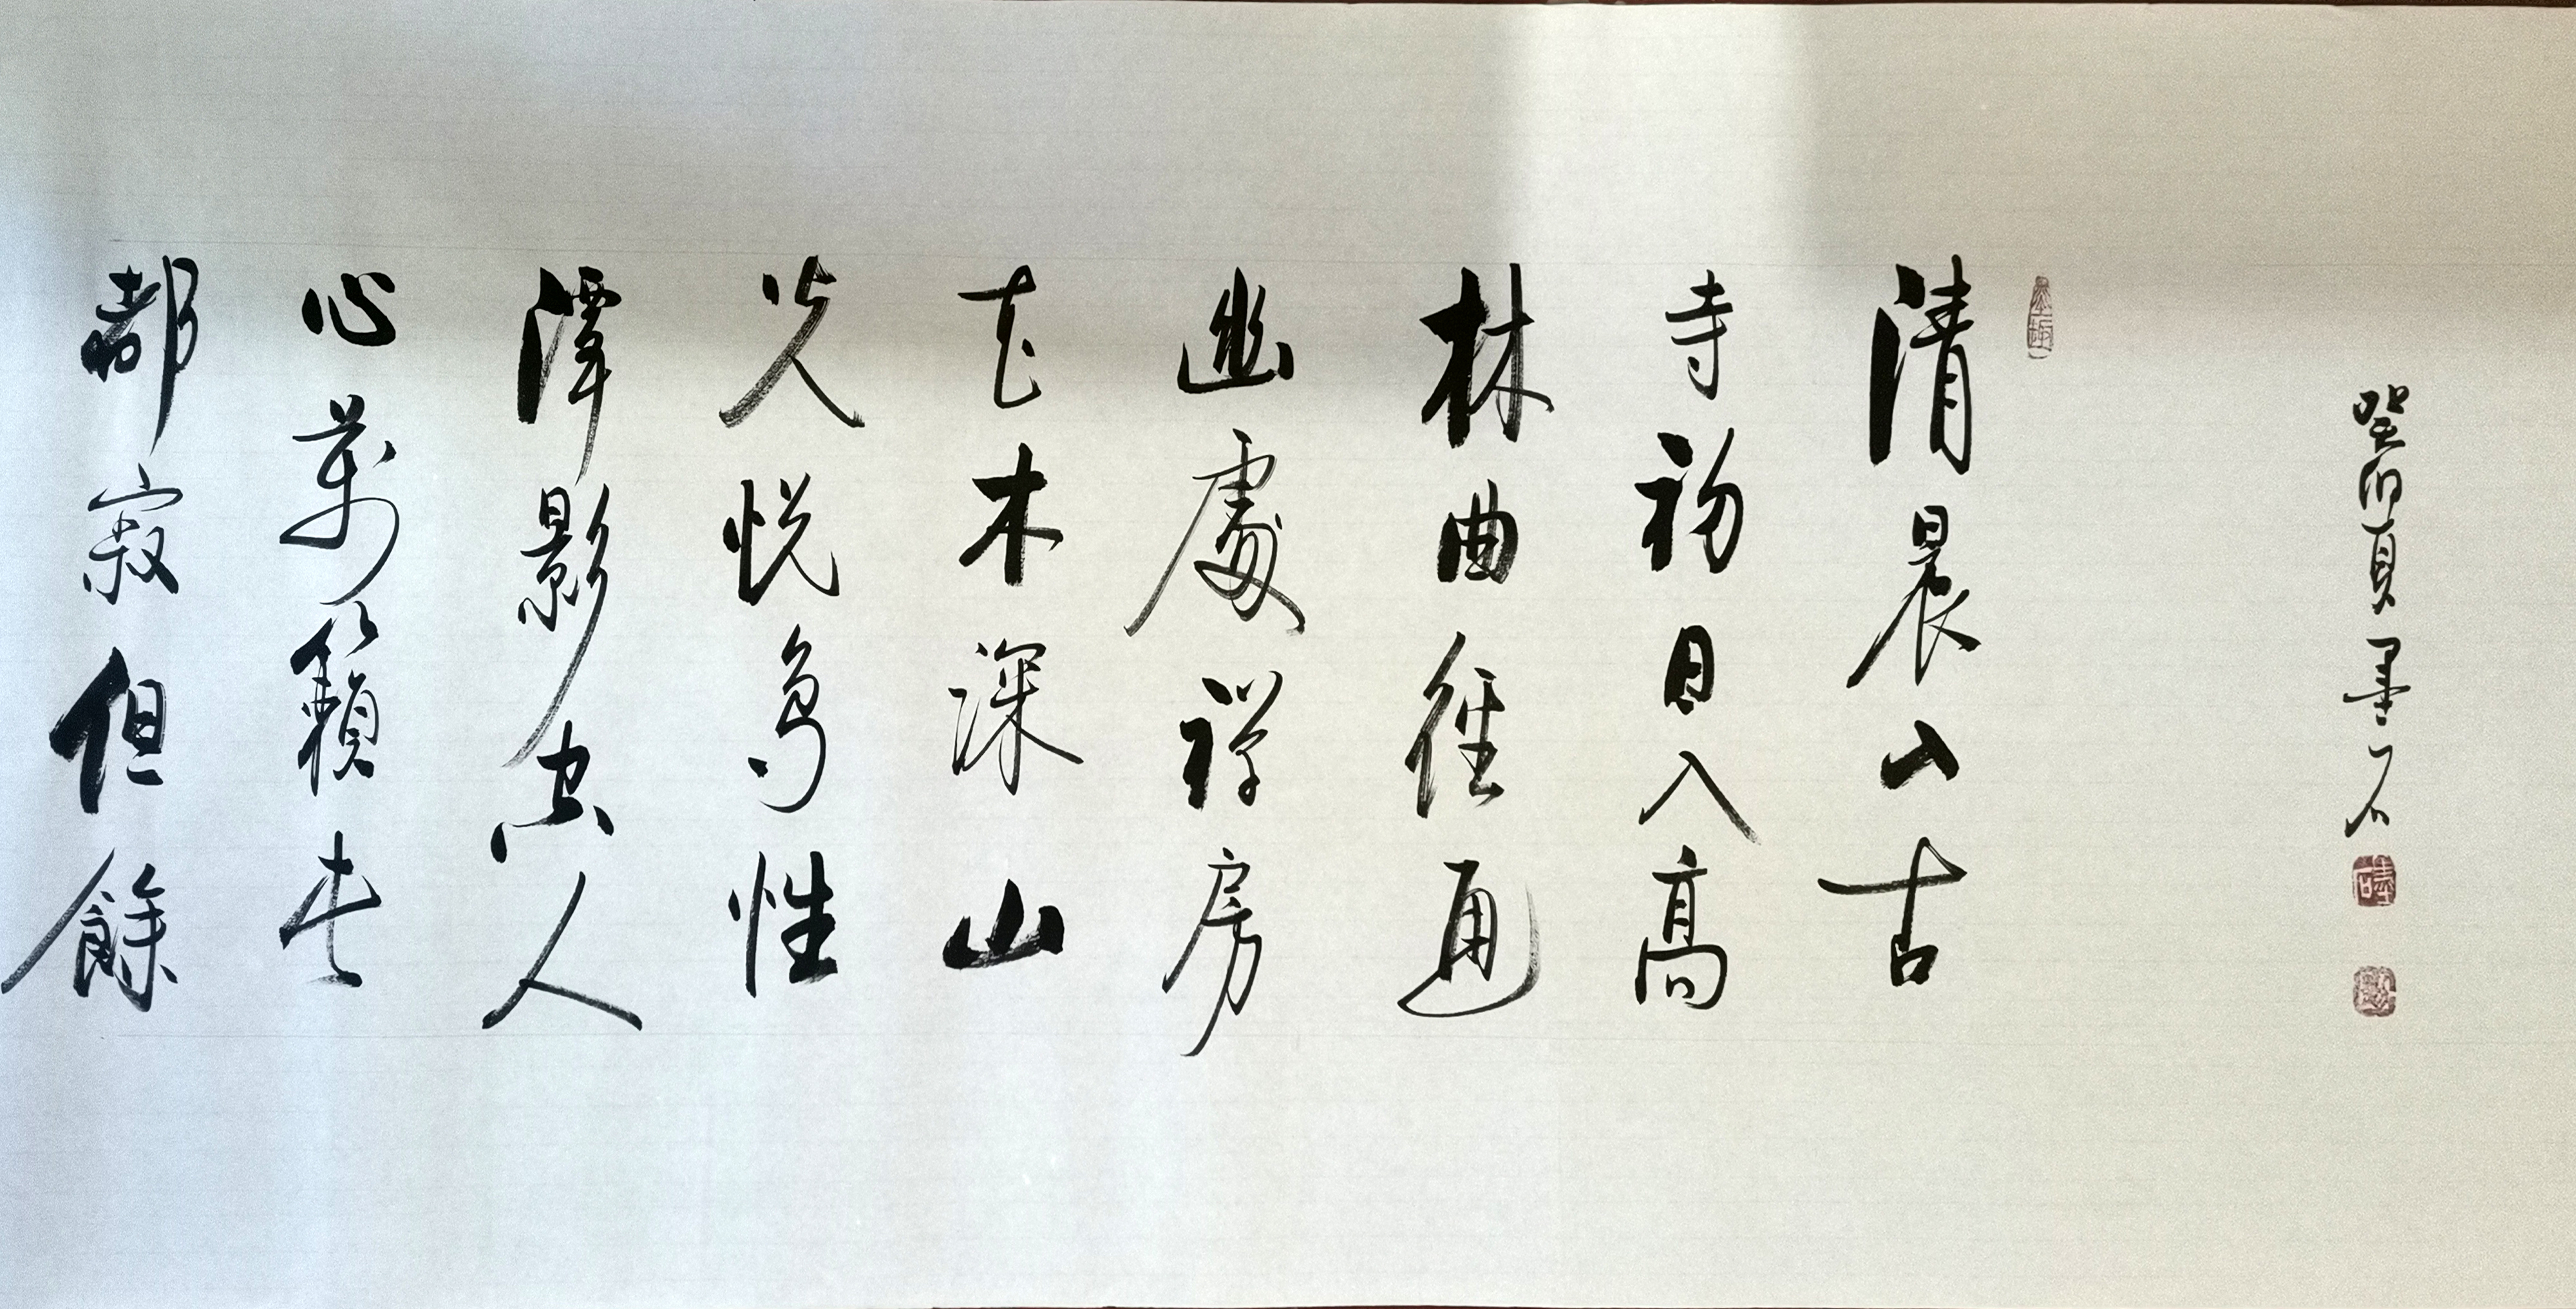 癸卯夏墨石
清晨山古
寺初日入高
林曲徑通
幽處禪房
花木深山
光悅鳥性
潭影空人
心萬籟此
都寂但餘